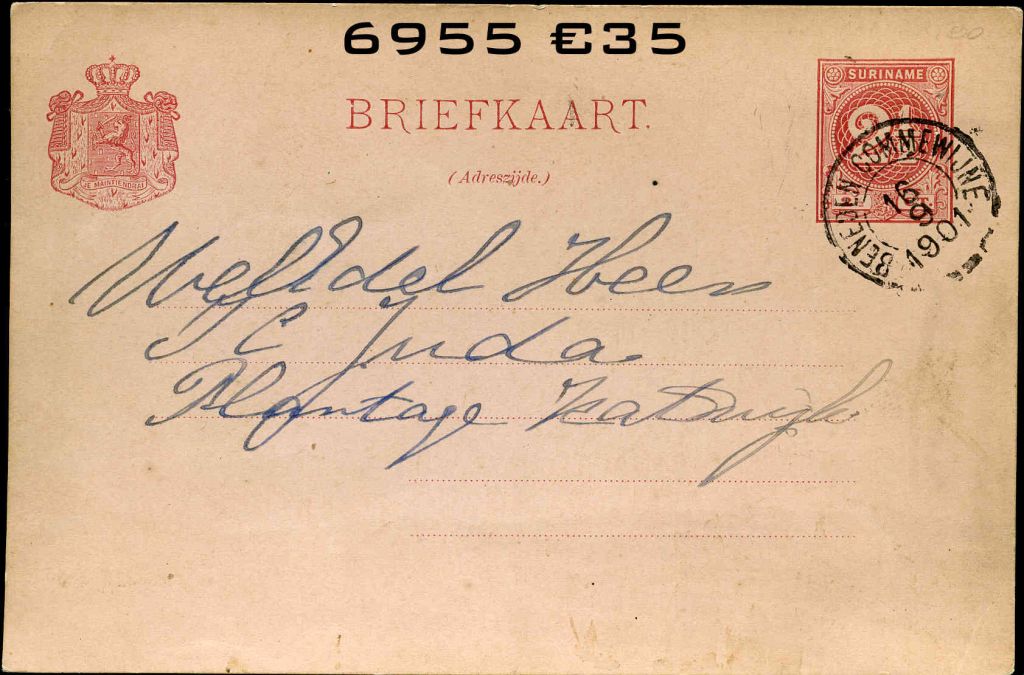 6955 €35
SURINAME
BRIEFKAART.
JE MAINTIENDRAI
(Adreszijde.)
BENEDEN COMMEWIJNE
1901
WelEdel Heer
Juda
Plantage Katwijk